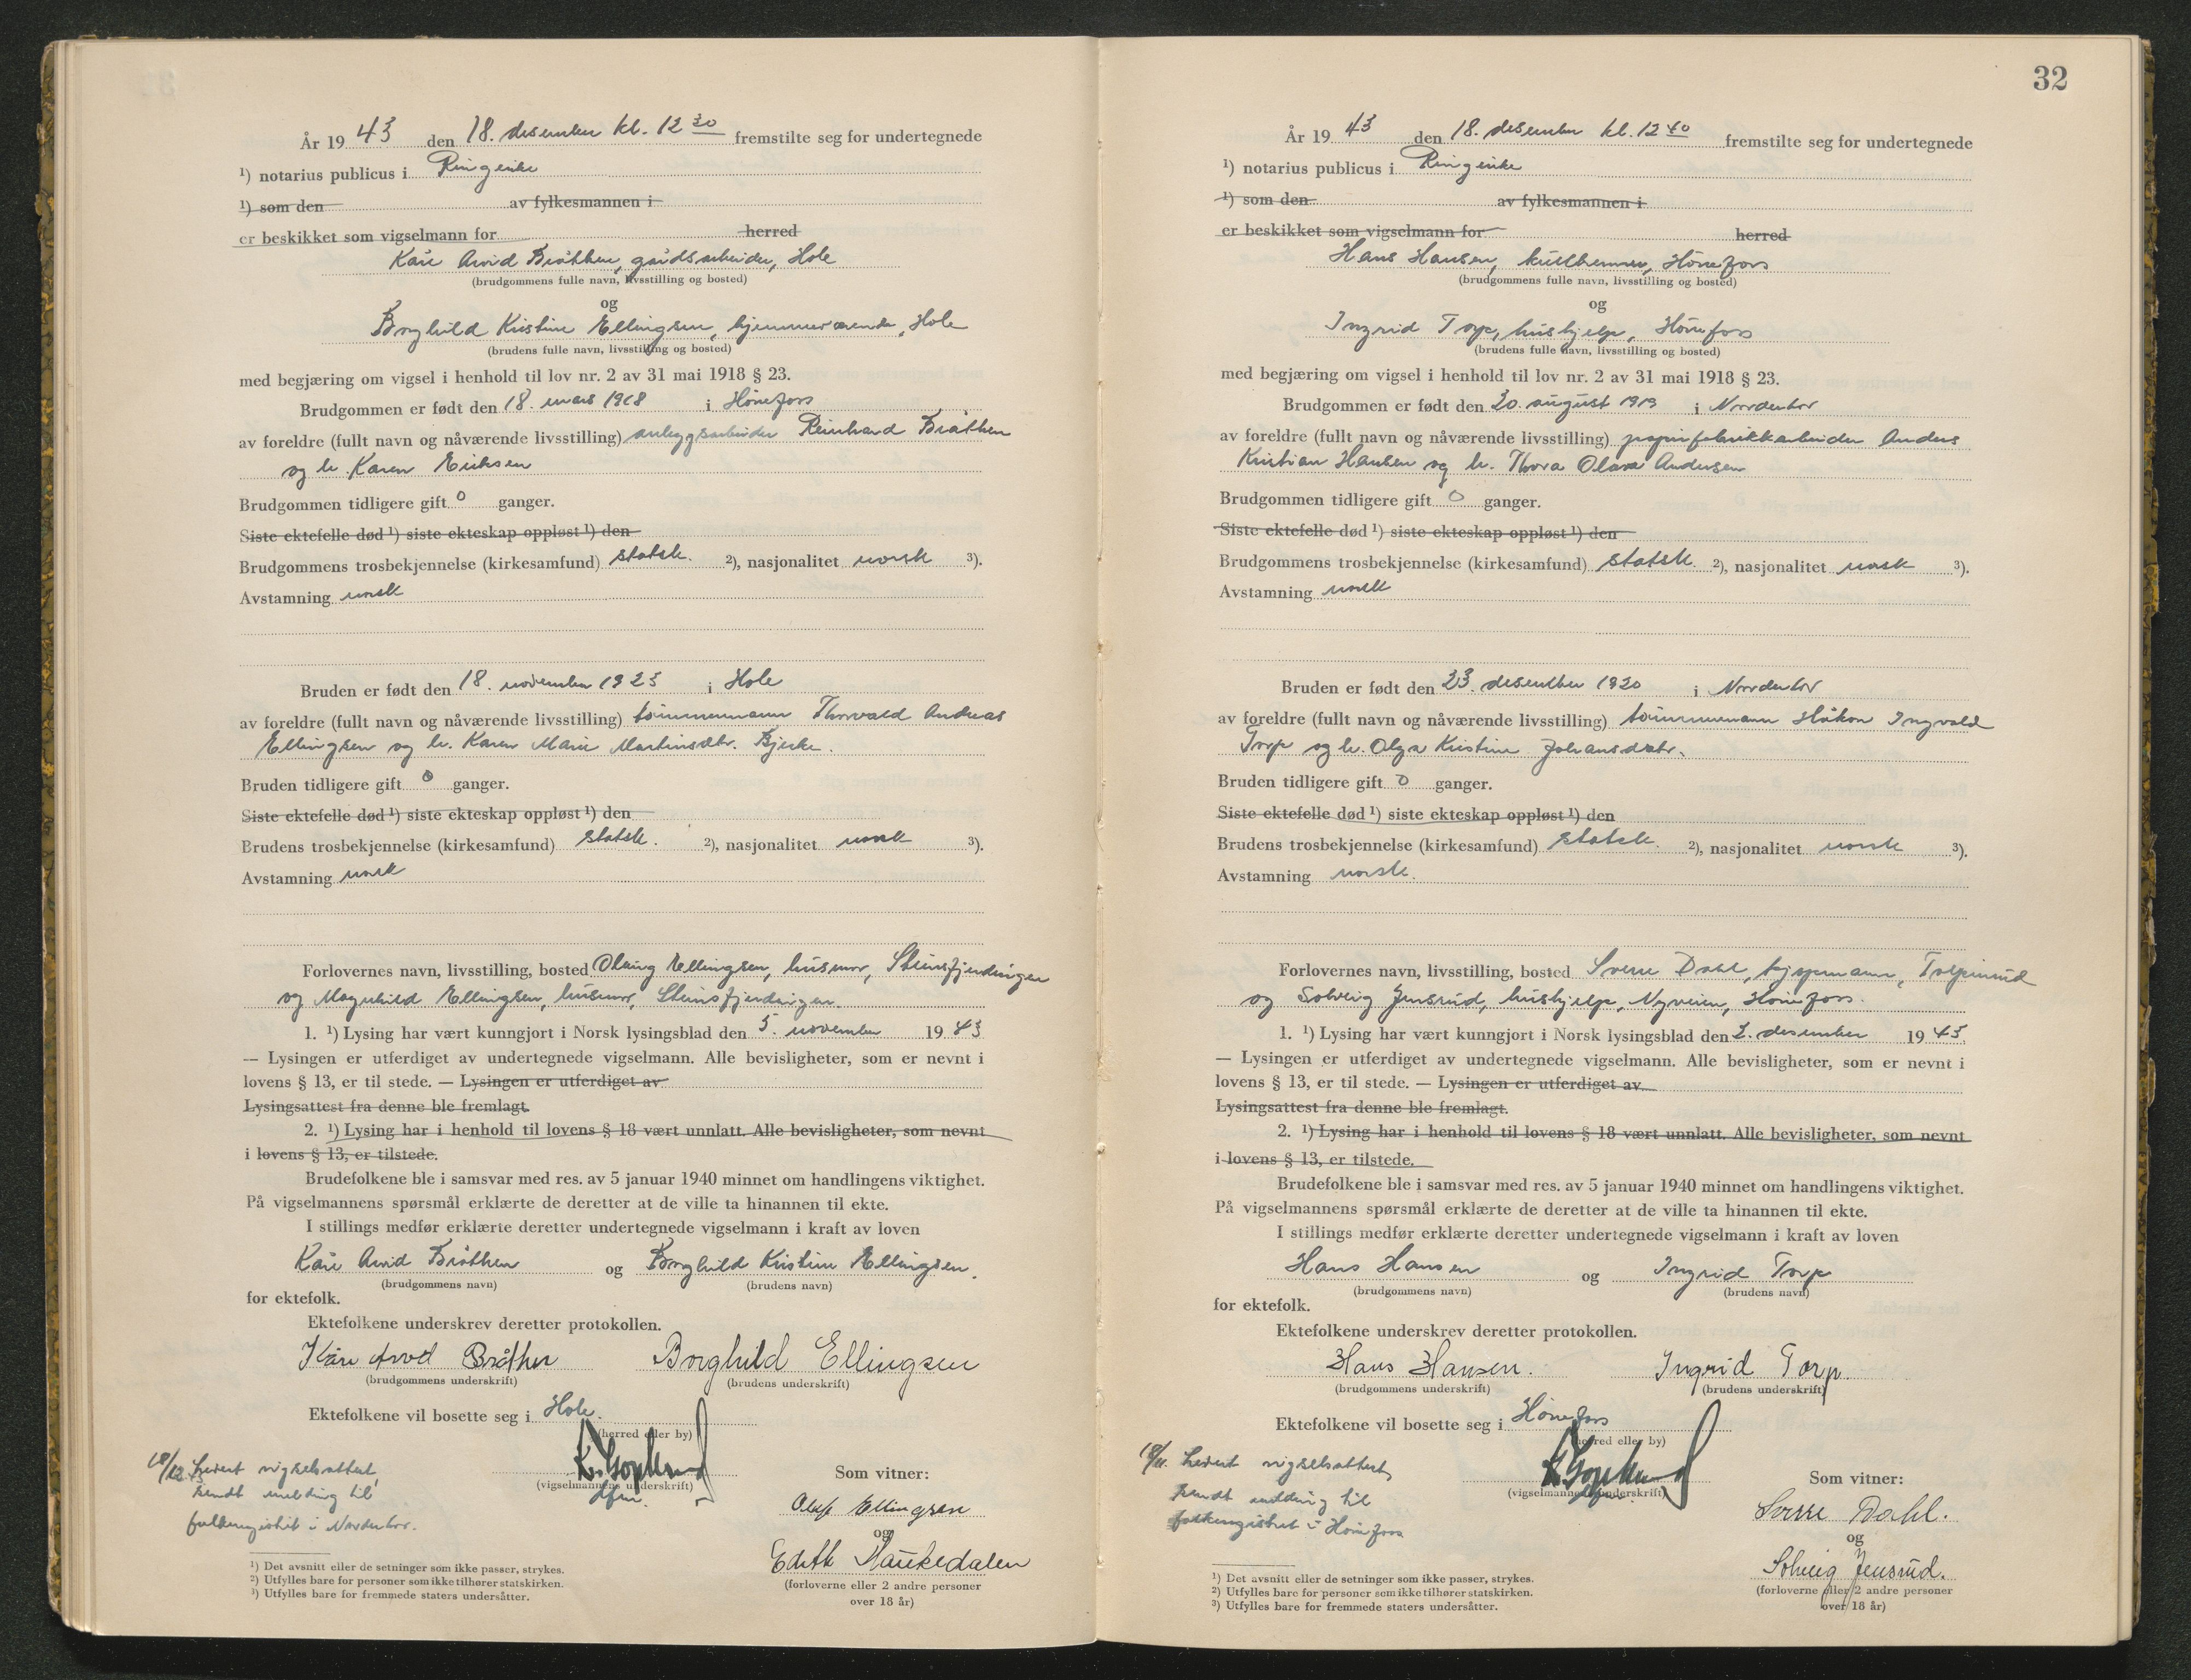 År 19 43 den 18. desember kl. 12 30 fremstilte seg for undertegnede
¹) notarius publicus i Ringerike
¹) som den av fylkesmannen i
er beskikket som vigselmann for herred
Kåre Arvid Bråthen, gårdsarbeider, Hole
(brudgommens fulle navn, livsstilling og bosted)
og
Borghild Kristine Ellingsen, hjemmeværende, Hole
(brudens fulle navn, livsstilling og bosted)
med begjæring om vigsel i henhold til lov nr. 2 av 31 mai 1918 § 23.
Brudgommen er født den 18. mars 1918 i Hønefoss
av foreldre (fullt navn og nåværende livsstilling) anleggsarbeider Reinhard Bråthen
og h. Karen Eriksen
Brudgommen tidligere gift 0 ganger.
Siste ektefelle død ¹) siste ekteskap oppløst ¹) den
Brudgommens trosbekjennelse (kirkesamfund) statsk. ²), nasjonalitet norsk ³).
Avstamning norsk
Bruden er født den 18. november 1925 i Hole
av foreldre (fullt navn og nåværende livsstilling) tømmermann Thorvald Andreas
Ellingsen og h. Karen Marie Martinsdtr. Bjerke.
Bruden tidligere gift 0 ganger.
Siste ektefelle død ¹) siste ekteskap oppløst ¹) den
Brudens trosbekjennelse (kirkesamfund) statsk. ²), nasjonalitet norsk ³).
Avstamning norsk
Forlovernes navn, livsstilling, bosted Ellingsen, husmor, Steinsfjerdingen
og Magnhild Ellingsen, husmor, Steinsfjerdingen.
1. ¹) Lysing har vært kunngjort i Norsk lysingsblad den 5. november 19 43
— Lysingen er utferdiget av undertegnede vigselmann. Alle bevisligheter, som er nevnt i
lovens § 13, er til stede. — Lysingen er utferdiget av
Lysingsattest fra denne ble fremlagt.
2. ¹) Lysing har i henhold til lovens § 18 vært unnlatt. Alle bevisligheter, som nevnt
i lovens § 13, er tilstede.
Brudefolkene ble i samsvar med res. av 5 januar 1940 minnet om handlingens viktighet.
På vigselmannens spørsmål erklærte de deretter at de ville ta hinannen til ekte.
I stillings medfør erklærte deretter undertegnede vigselmann i kraft av loven
Kåre Arvid Bråthen og Borghild Kristine Ellingsen.
(brudgommens navn) (brudens navn)
for ektefolk.
Ektefolkene underskrev deretter protokollen.
Kåre Arvid Bråthen Borghild Ellingsen
(brudgommens underskrift) (brudens underskrift)
Ektefolkene vil bosette seg i Hole.
(herred eller by)
18/12 Levert vigselsattest,
sendt melding til
folkeregistret i Norderhov.
(vigselmannens underskrift)
Som vitner:
Oluf Ellingsen
og
Edith Haukedalen
(forloverne eller 2 andre personer
over 18 år)
¹) Det avsnitt eller de setninger som ikke passer, strykes.
²) Utfylles bare for personer som ikke tilhører statskirken.
³) Utfylles bare for fremmede staters undersåtter.
32
År 19 43 den 18. desember kl. 12 40 fremstilte seg for undertegnede
¹) notarius publicus i Ringerike
¹) som den av fylkesmannen i
er beskikket som vigselmann for herred
Hans Hansen, Hønefoss
(brudgommens fulle navn, livsstilling og bosted)
og
Ingrid Torp, hushjelp, Hønefoss
(brudens fulle navn, livsstilling og bosted)
med begjæring om vigsel i henhold til lov nr. 2 av 31 mai 1918 § 23.
Brudgommen er født den 20. august 1919 i Norderhov
av foreldre (fullt navn og nåværende livsstilling) papirfabrikkarbeider Anders
Kristian Hansen og h. Thora Olava Andersen
Brudgommen tidligere gift 0 ganger.
Siste ektefelle død ¹) siste ekteskap oppløst ¹) den
Brudgommens trosbekjennelse (kirkesamfund) statsk. ²), nasjonalitet norsk ³).
Avstamning norsk
Bruden er født den 23. desember 1920 i Norderhov
av foreldre (fullt navn og nåværende livsstilling) tømmermann Håkon Ingvald
Torp og h. Olga Kristine Johansdatr.
Bruden tidligere gift 0 ganger.
Siste ektefelle død ¹) siste ekteskap oppløst ¹) den
Brudens trosbekjennelse (kirkesamfund) statsk. ²), nasjonalitet norsk ³).
Avstamning norsk.
Forlovernes navn, livsstilling, bosted Sverre Dahl,
og Solveig Jensrud, hushjelp, Nyveien, Hønefoss.
1. ¹) Lysing har vært kunngjort i Norsk lysingsblad den 2. desember 19 43.
— Lysingen er utferdiget av undertegnede vigselmann. Alle bevisligheter, som er nevnt i
lovens § 13, er til stede. — Lysingen er utferdiget av
Lysingsattest fra denne ble fremlagt.
2. ¹) Lysing har i henhold til lovens § 18 vært unnlatt. Alle bevisligheter, som nevnt
i lovens § 13, er tilstede.
Brudefolkene ble i samsvar med res. av 5 januar 1940 minnet om handlingens viktighet.
På vigselmannens spørsmål erklærte de deretter at de ville ta hinannen til ekte.
I stillings medfør erklærte deretter undertegnede vigselmann i kraft av loven
Hans Hansen og Ingrid Torp
(brudgommens navn) (brudens navn)
for ektefolk.
Ektefolkene underskrev deretter protokollen.
Hans Hansen. Ingrid Torp.
(brudgommens underskrift) (brudens underskrift)
Ektefolkene vil bosette seg i Hønefoss
(herred eller by)
Levert vigselsattest,
sendt melding til
folkeregistret i Hønefoss
(vigselmannens underskrift)
Som vitner:
Sverre Dahl.
og
Solveig Jensrud.
(forloverne eller 2 andre personer
over 18 år)
¹) Det avsnitt eller de setninger som ikke passer, strykes.
²) Utfylles bare for personer som ikke tilhører statskirken.
³) Utfylles bare for fremmede staters undersåtter.